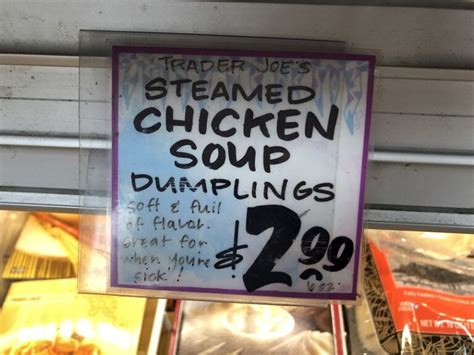 TRADER JOE'S
STEAMED
CHICKEN
SOUP
DUMPLINGS
soft & full
of flavor.
great for
when you're
sick!
$2.99
6 oz.